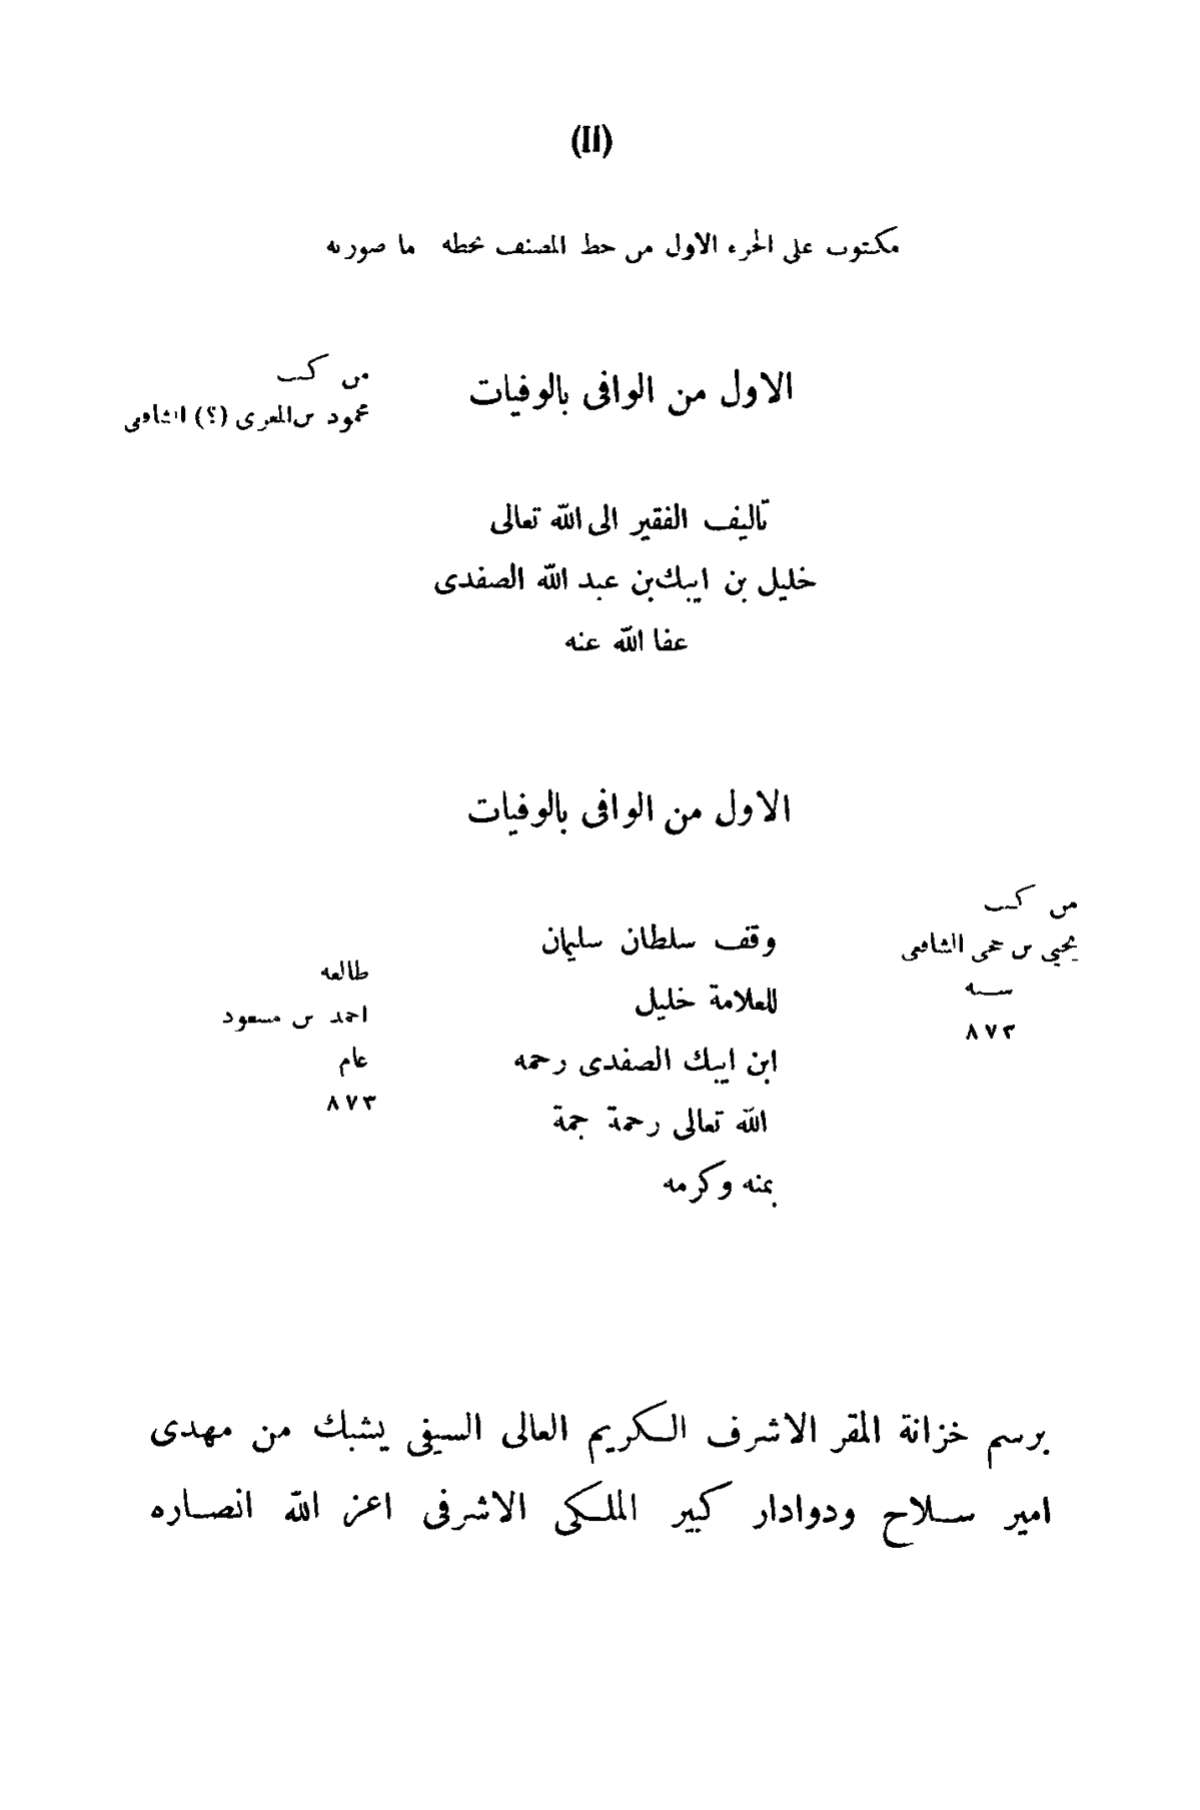 (II)
مكتوب على الجزء الاول من خط المصنف بخطه ما صورته
الاول من الوافى بالوفيات
من كتب
محمود بن المعرى (؟) الشافعى
تاليف الفقير الى الله تعالى
خليل بن ايبك بن عبد الله الصفدى
عفا الله عنه
الاول من الوافى بالوفيات
من كتب
يحيي بن حجى الشافعى
سنة
٨٧٣
وقف سلطان سليمان
للعلامة خليل
ابن ايبك الصفدى رحمه
الله تعالى رحمة جمة
بمنه وكرمه
طالعه
احمد بن مسعود
عام
٨٧٣
برسم خزانة المقر الاشرف الكريم العالى السيفى يشبك من مهدى
امير سلاح ودوادار كبير الملكى الاشرفى اعز الله انصاره